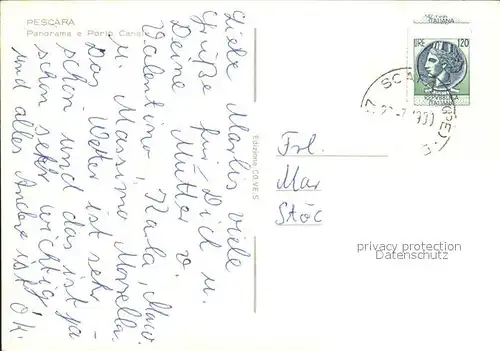 PESCARA
Panorama e Porto Canale
Liebe Marlis viele
Grüße für Dich u.
Deine Mutter v.
Valentino, Karla, Marco
u. Massimo Marsella.
Das Wetter ist sehr
schön und das ist ja
schon sehr wichtig
und alles Andere ist O.K.
Edizione CO.VE.S
REPUBBLICA
ITALIANA
LIRE 120
REPUBBLICA
ITALIANA
Frl.
Mar
Stöc
privacy protection
Datenschutz